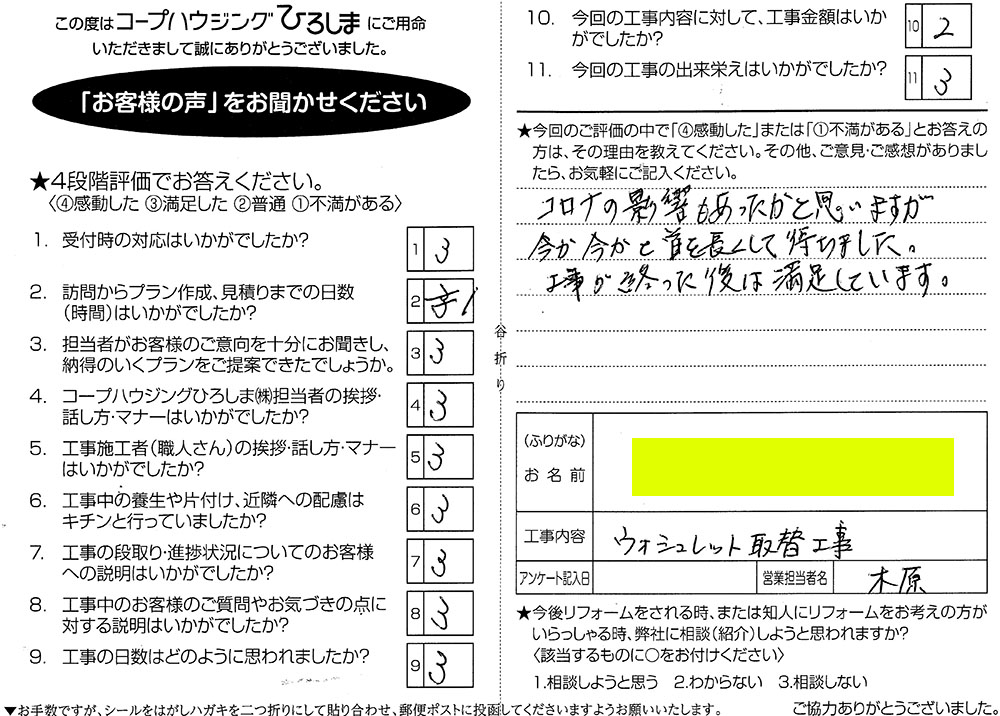 この度はコープハウジングひろしまにご用命
いただきまして誠にありがとうございました。
「お客様の声」をお聞かせください
★4段階評価でお答えください。
〈④感動した ③満足した ②普通 ①不満がある〉
1. 受付時の対応はいかがでしたか?
1 3
2. 訪問からプラン作成、見積りまでの日数
(時間)はいかがでしたか?
2 辛1
3. 担当者がお客様のご意向を十分にお聞きし、
納得のいくプランをご提案できたでしょうか。
3 3
4. コープハウジングひろしま㈱担当者の挨拶・
話し方・マナーはいかがでしたか?
4 3
5. 工事施工者(職人さん)の挨拶・話し方・マナー
はいかがでしたか?
5 3
6. 工事中の養生や片付け、近隣への配慮は
キチンと行っていましたか?
6 3
7. 工事の段取り・進捗状況についてのお客様
への説明はいかがでしたか?
7 3
8. 工事中のお客様のご質問やお気づきの点に
対する説明はいかがでしたか?
8 3
9. 工事の日数はどのように思われましたか?
9 3
▼お手数ですが、シールをはがしハガキを二つ折りにして貼り合わせ、郵便ポストに投函してくださいますようお願いいたします。
谷折り
10. 今回の工事内容に対して、工事金額はいか
がでしたか?
10 2
11. 今回の工事の出来栄えはいかがでしたか?
11 3
★今回のご評価の中で「④感動した」または「①不満がある」とお答えの
方は、その理由を教えてください。その他、ご意見・ご感想がありまし
たら、お気軽にご記入ください。
コロナの影響もあったかと思いますが
今か今かと首を長くして待ちました。
工事が終った後は満足しています。
(ふりがな)
お名前
工事内容 ウォシュレット取替工事
アンケート記入日 営業担当者名 木原
★今後リフォームをされる時、または知人にリフォームをお考えの方が
いらっしゃる時、弊社に相談(紹介)しようと思われますか?
〈該当するものに○をお付けください〉
1.相談しようと思う 2.わからない 3.相談しない
ご協力ありがとうございました。